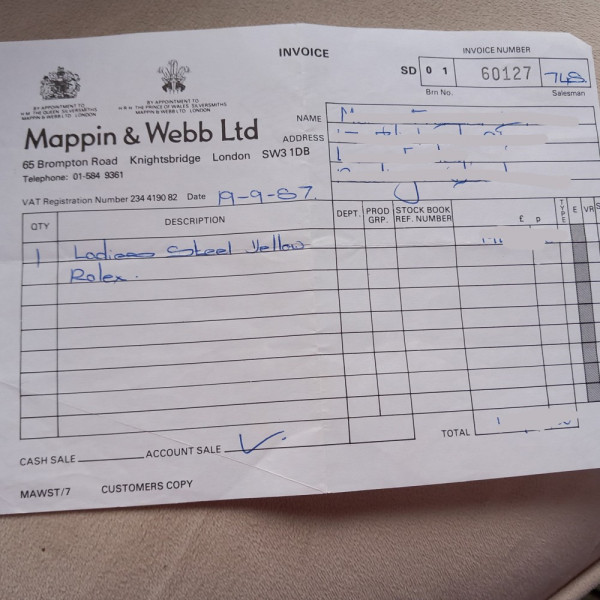 INVOICE
INVOICE NUMBER
SD 0 1 60127 748
Brn No. Salesman
BY APPOINTMENT TO
H M THE QUEEN SILVERSMITHS
MAPPIN & WEBB LTD LONDON
BY APPOINTMENT TO
H R H THE PRINCE OF WALES SILVERSMITHS
MAPPIN & WEBB LTD LONDON
Mappin & Webb Ltd
65 Brompton Road Knightsbridge London SW3 1DB
Telephone: 01-584 9361
VAT Registration Number 234 4190 82 Date 19-9-87.
NAME
ADDRESS
QTY DESCRIPTION DEPT. PROD GRP. STOCK BOOK REF. NUMBER £ p TYPE E VR S
1 Ladies Steel Yellow
Rolex.
CASH SALE ACCOUNT SALE
TOTAL
MAWST/7 CUSTOMERS COPY